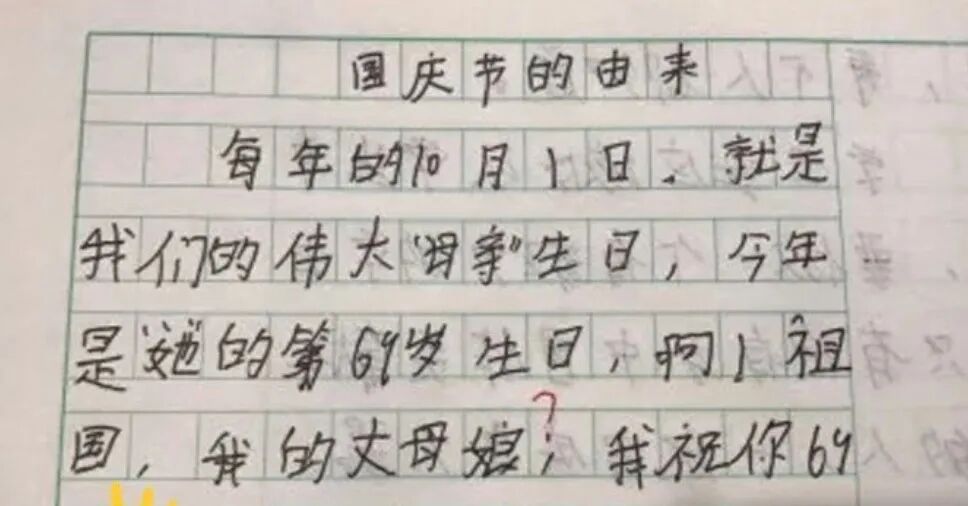 国庆节的由来
每年的10月1日，就是
我们的伟大“母亲”生日，今年
是“她”的第69岁生日，啊！祖
国，我的丈母娘？我祝你69